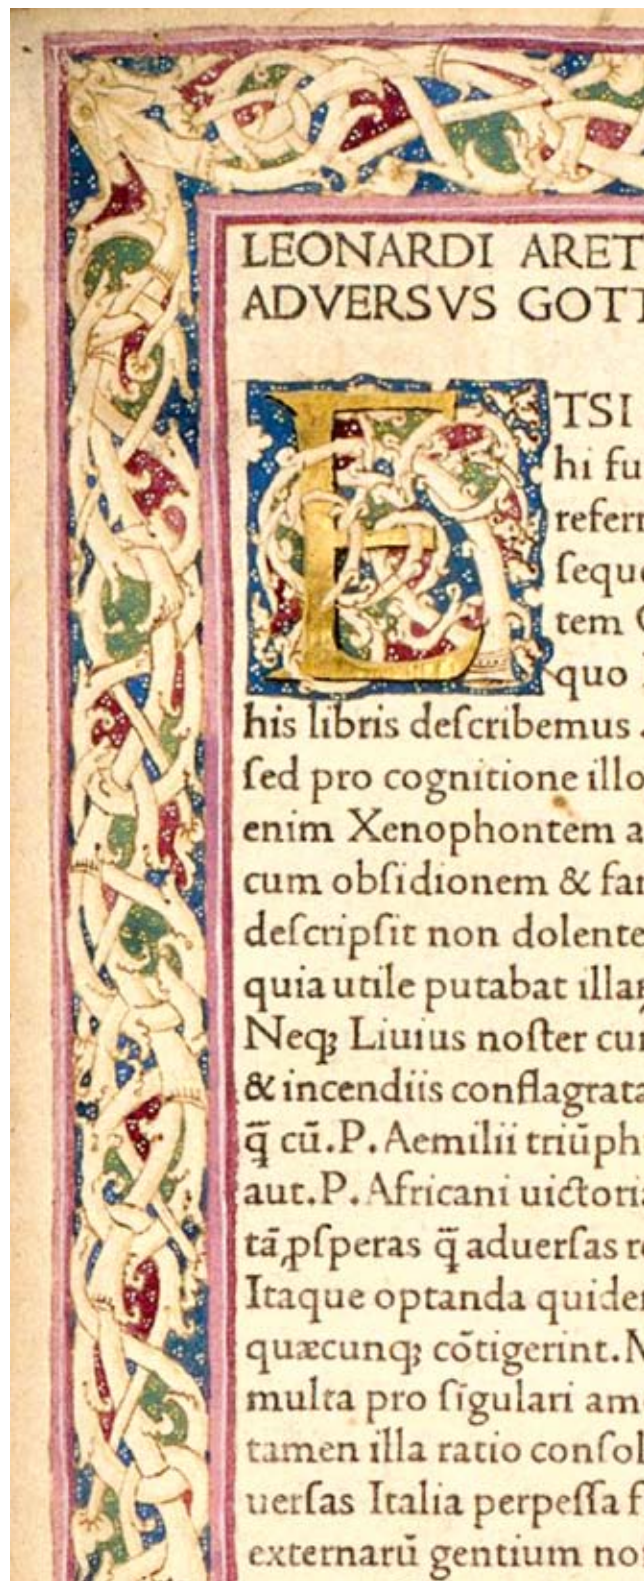 LEONARDI ARET
ADVERSVS GOTT
ETSI
hi fu
referr
ſeque
tem
quo
his libris deſcribemus.
ſed pro cognitione illo
enim Xenophontem a
cum obſidionem & fam
deſcripſit non dolente
quia utile putabat illaꝝ
Neqꝫ Liuius noſter cum
& incendiis conflagrata
q̄ cū.P.Aemilii triūph
aut.P.Africani uictoria
tā ꝓſperas q̄ aduerſas re
Itaque optanda quidem
quæcunqꝫ cōtigerint.N
multa pro ſīgulari am
tamen illa ratio conſol
uerſas Italia perpeſſa f
externarū gentium no